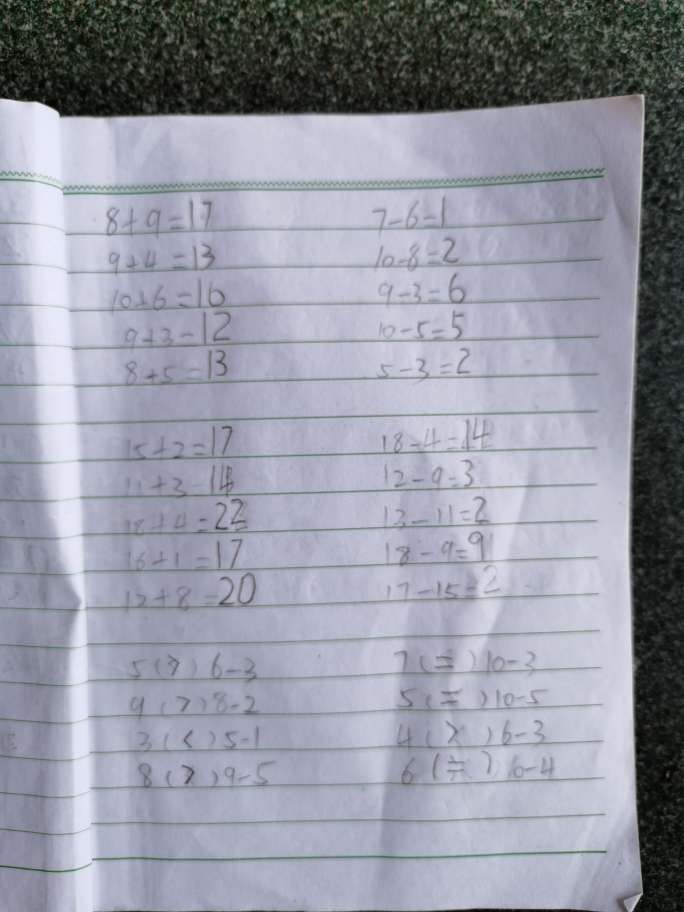 8+9=17 7-6=1
9+4=13 10-8=2
10+6=16 9-3=6
9+3=12 10-5=5
8+5=13 5-3=2
15+2=17 18-4=14
11+3=14 12-9=3
18+4=22 13-11=2
16+1=17 18-9=9
12+8=20 17-15=2
5(>)6-3 7(=)10-3
9(>)8-2 5(=)10-5
3(<)5-1 4(>)6-3
8(>)9-5 6(=)10-4